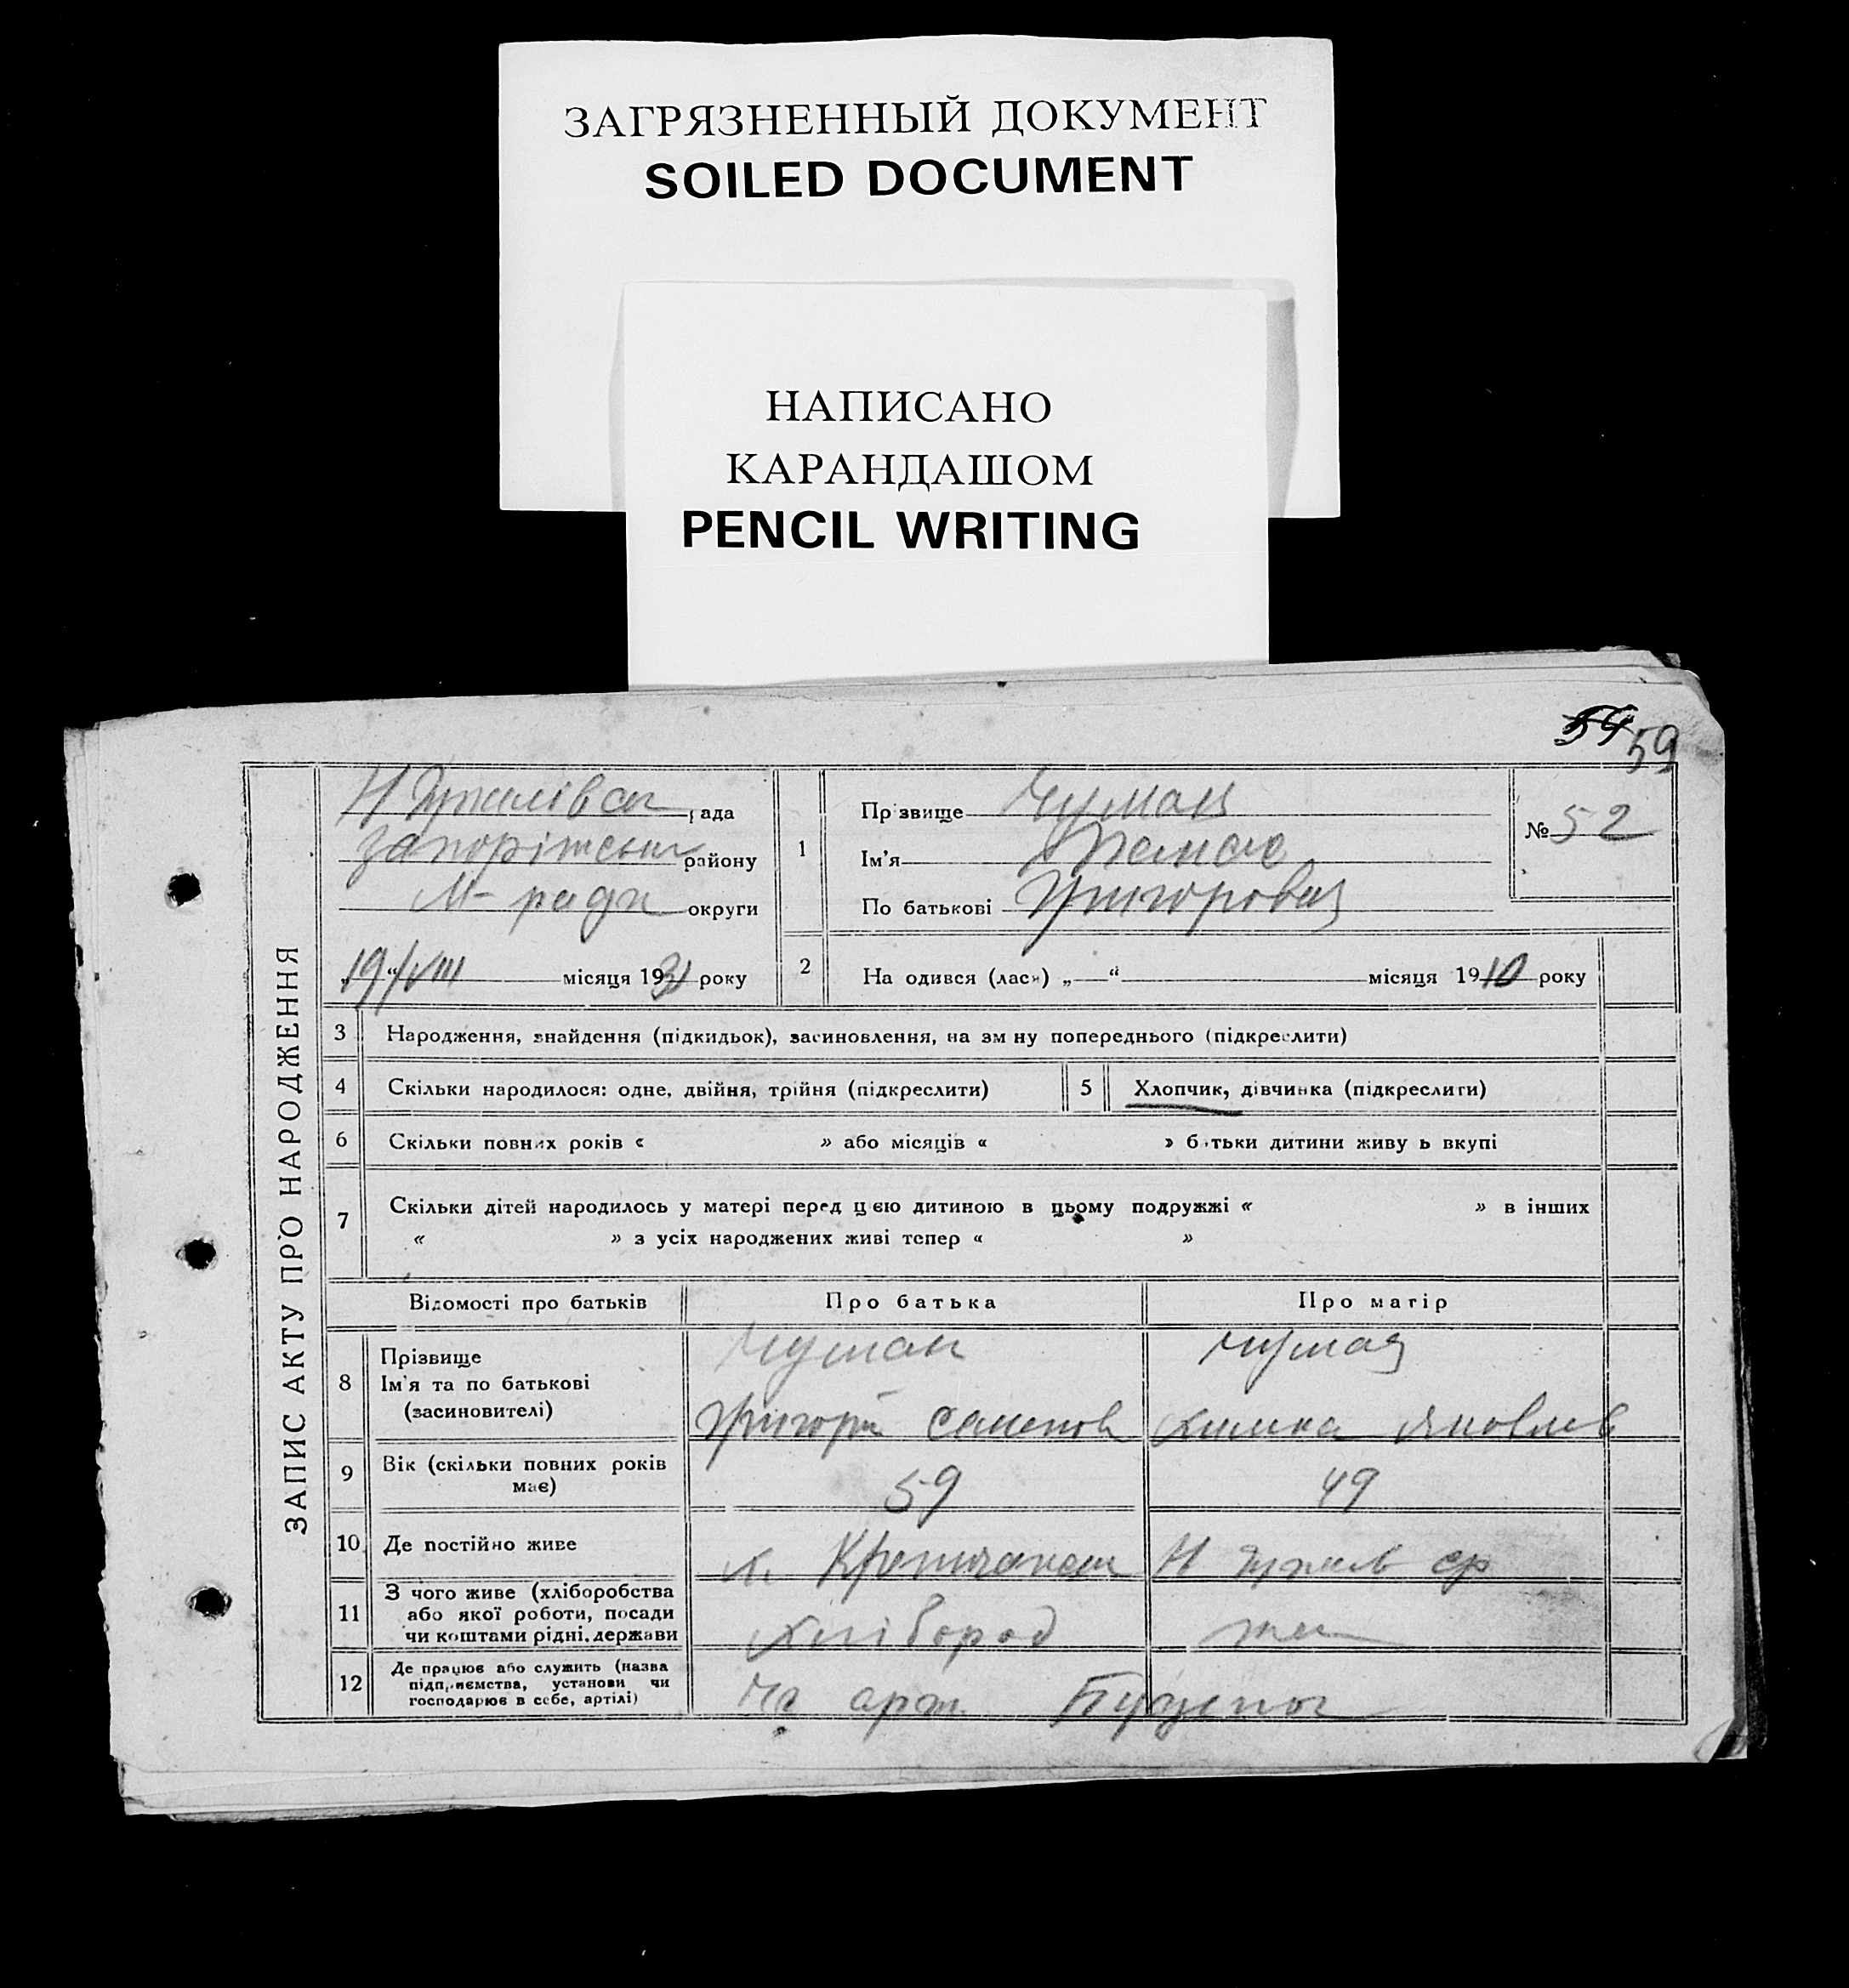 ЗАГРЯЗНЕННЫЙ ДОКУМЕНТ
SOILED DOCUMENT
НАПИСАНО
КАРАНДАШОМ
PENCIL WRITING
54 59
ЗАПИС АКТУ ПРО НАРОДЖЕННЯ
рада
району
М-ради округи
19/VIII місяця 1931 року
1
Прізвище Чумак
Ім'я
По батькові Григорович
№ 52
2
Народився (лася) „—“ місяця 1910 року
3 Народження, знайдення (підкидьок), засиновлення, на зміну попереднього (підкреслити)
4 Скільки народилося: одне, двійня, трійня (підкреслити)
5 Хлопчик, дівчинка (підкреслити)
6 Скільки повних років « » або місяців « » батьки дитини живуть вкупі
7 Скільки дітей народилось у матері перед цією дитиною в цьому подружжі « » в інших
« » з усіх народжених живі тепер « »
Відомості про батьків Про батька Про матір
8 Прізвище
Ім'я та по батькові
(засиновителі)
Чумак
Григорій Семенов
Чумак
Яковлев
9 Вік (скільки повних років
має)
59 49
10 Де постійно живе
х.
11 З чого живе (хліборобства
або якої роботи, посади
чи коштами рідні, держави
Хлібороб
12 Де працює або служить (назва
підприємства, установи чи
господарює в себе, артілі)
арт.